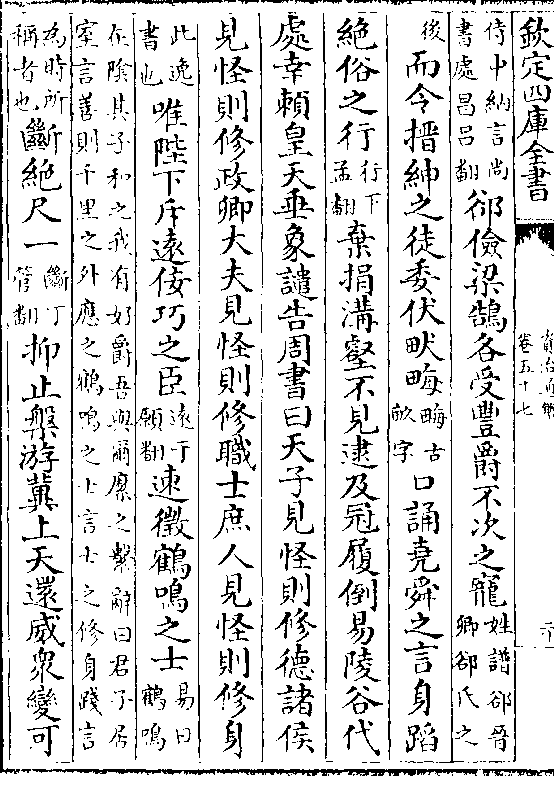 欽定四庫全書
卷五十七
侍中納言尚
書處昌呂翻
郤儉梁鵠各受豐爵不次之寵
姓譜郤晉
卿郤氏之
後
而令搢紳之徒委伏畎畮
畮古
畝字
口誦堯舜之言身蹈
絶俗之行
行下
孟翻
棄捐溝壑不見逮及冠履倒易陵谷代
處幸賴皇天垂象譴告周書曰天子見怪則修德諸侯
見怪則修政卿大夫見怪則修職士庶人見怪則修身
此逸
書也
唯陛下斥遠佞巧之臣
遠于
願翻
速徵鶴鳴之士
易曰
鶴鳴
在陰其子和之我有好爵吾與爾縻之繫辭曰君子居
室言善則千里之外應之鶴鳴之士言士之修身踐言
為時所
稱者也
斷絶尺一
斷丁
管翻
抑止槃游冀上天還威衆變可